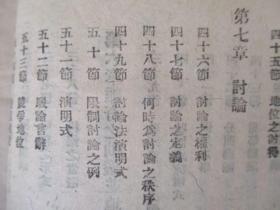 四十五節 地位之討得
第七章 討論
四十六節 討論之權利
四十七節 討論之定義
四十八節 何時為討論之秩序
四十九節 討論法演明式
五十節 限制討論之例
五十一節 演明式
五十二節 論言辭
五十三節 地位